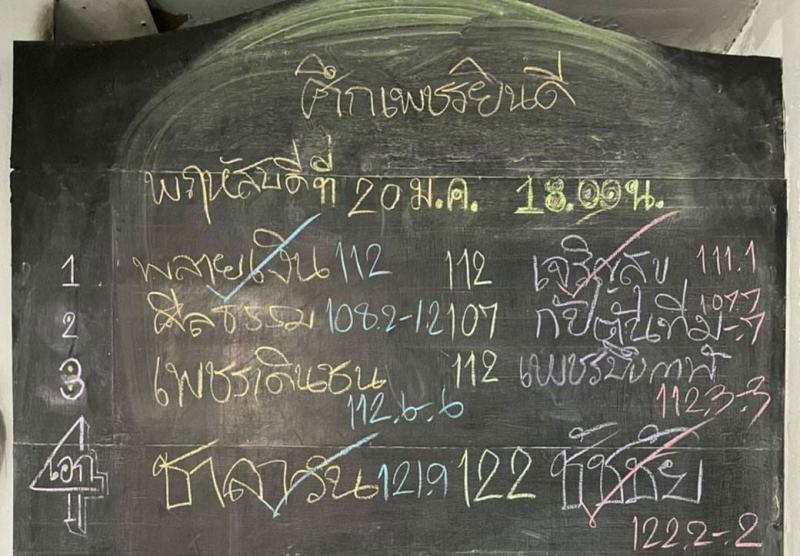 ศึกเพชรยินดี
พฤหัสบดีที่ 20 ม.ค. 18.00 น.
1 พลายเงิน 112 112 เจริญสุข 111.1
2 ศีลธรรม 108.2-1.2 107 กัปตันทีม 107.7-.7
3 เพชรเดินชน 112.6-.6 112 112.3-.3
4 เอก ชาลาวัน 121.9 122 ชัชชัย 122.2-.2